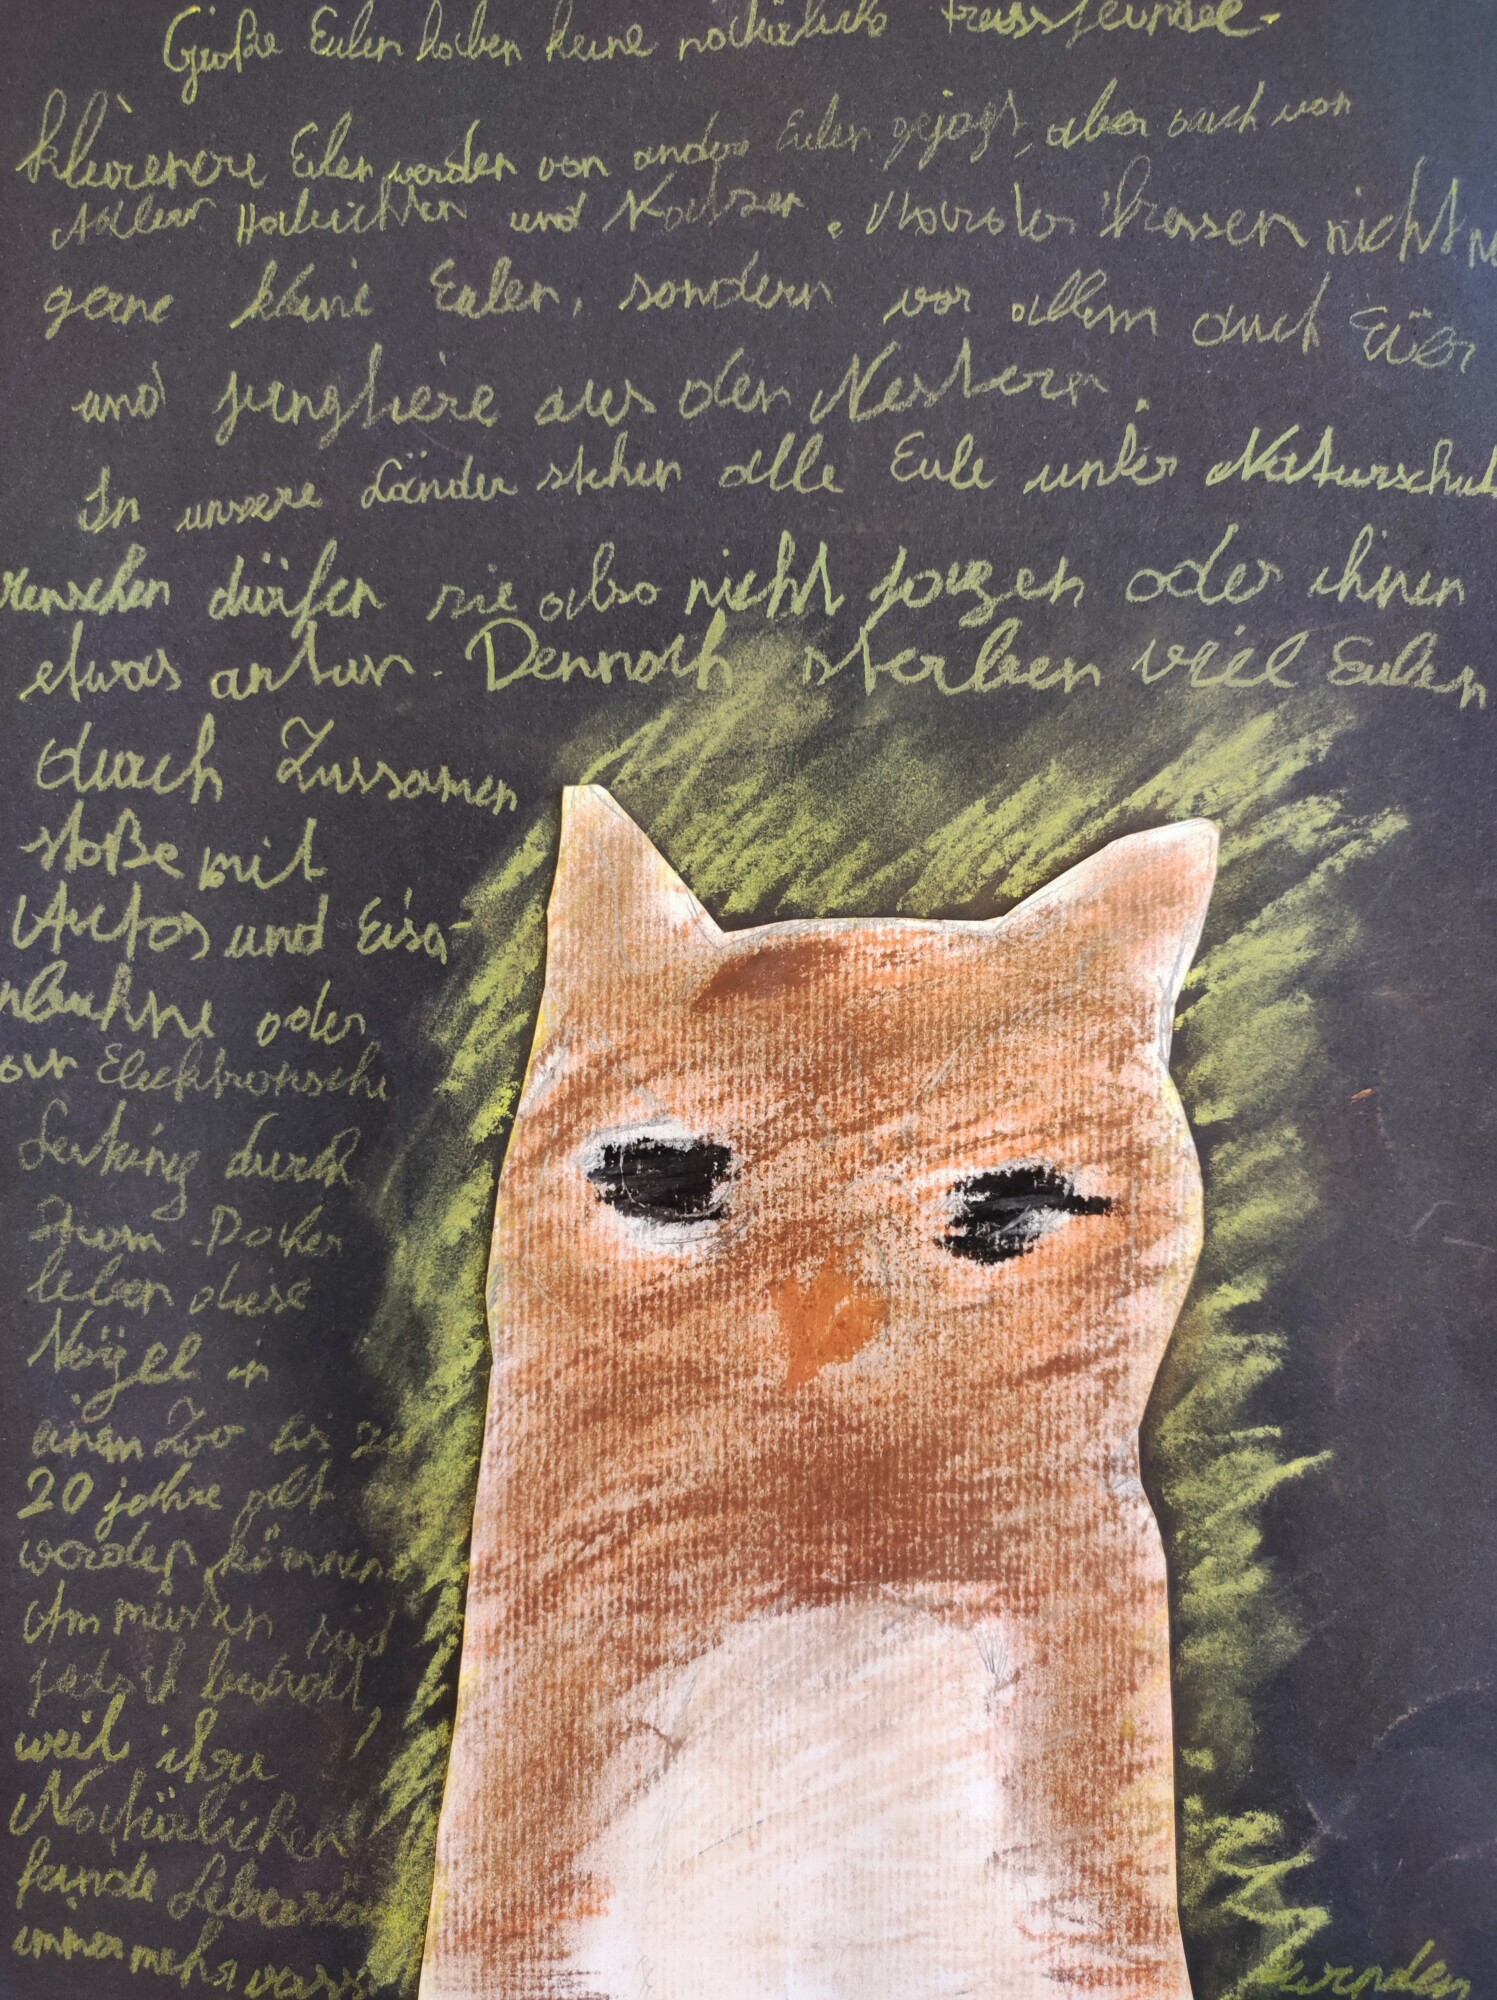 Große Eulen haben keine natürliche Fressfeinde.
kleinere Eulen werden von andere Eulen gejagt, aber auch von
Adler Habichten und Katzen. Marder fressen nicht
gerne kleine Eulen, sondern vor allem auch Eier
und jungtiere aus den Nestern.
In unsere Länder stehen alle Eule unter Naturschutz
menschen dürfen sie also nicht jagen oder ihnen
etwas antun. Dennoch sterben viel Eulen
durch Zussamen
stoße mit
Autos und Eisa-
oder
Elecktronische
durch
leben diese
Vögel in
einem Zoo bis zu
20 jahre alt
worden können
Am meisten sind
jedoch bedroht,
weil ihre
Natürlichen
feinde
immer mehr
wurden